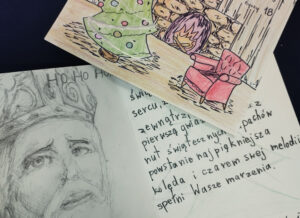 18
HO HO HO
świ
sercu,
zewnątrz
pierwszą gwia
nut świątecznych pachów
powstanie najpiękniejsza
kolęda i czarem swej melodii
spełni Wasze marzenia.